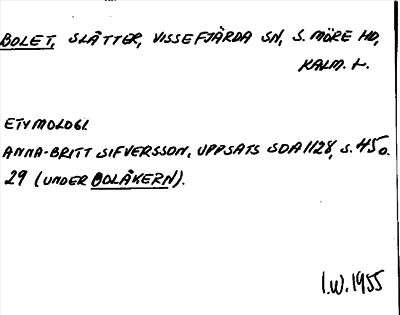 BOLET, SLÅTTER, VISSEFJÄRDA SN, S. MÖRE HD,
KALM. L.
ETYMOLOGI.
ANNA-BRITT SIFVERSSON, UPPSATS SDA 1128, S. 45 o.
29 (UNDER BOLÅKERN).
I.W. 1955